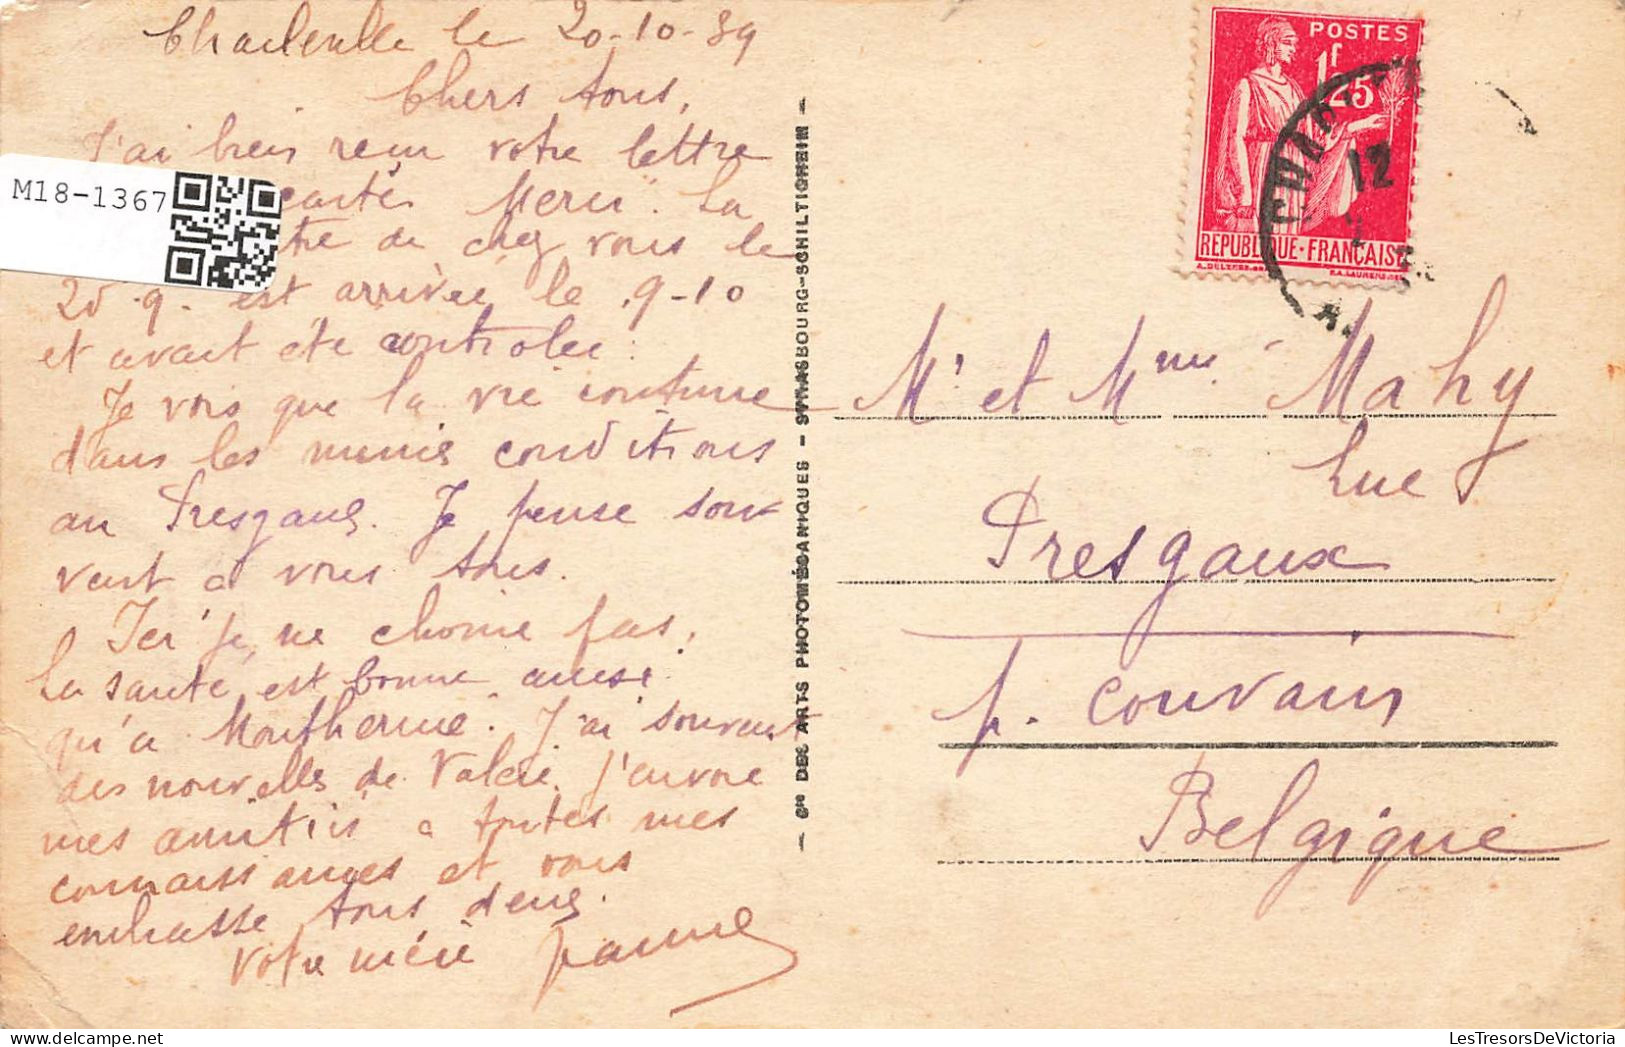 Charleville le 20-10-39
Chers tous,
J'ai bien reçu votre lettre
cartes Merci. La
tre de chez vous le
25.9. est arrivée le 9-10
et avait été controlée.
Je vois que la vie continue
dans les mêmes conditions
au Presgaux. Je pense sou-
vent à vous tous.
Ici je ne chôme pas.
La santé est bonne ainsi
qu'à Monthermé. J'ai souvant
des nouvelles de Valérie. J'envoie
mes amitiés a toutes mes
connaissances et vous
embrasse tous deux.
Votre mère Jeanne
M18-1367
Sté DES ARTS PHOTOMÉCANIQUES - STRASBOURG-SCHILTIGHEIM
POSTES
1f 25
REPUBLIQUE·FRANÇAISE
12
Mr et Mme Mahy
Luc
Presgaux
p. Couvain
Belgique
LesTresorsDeVictoria